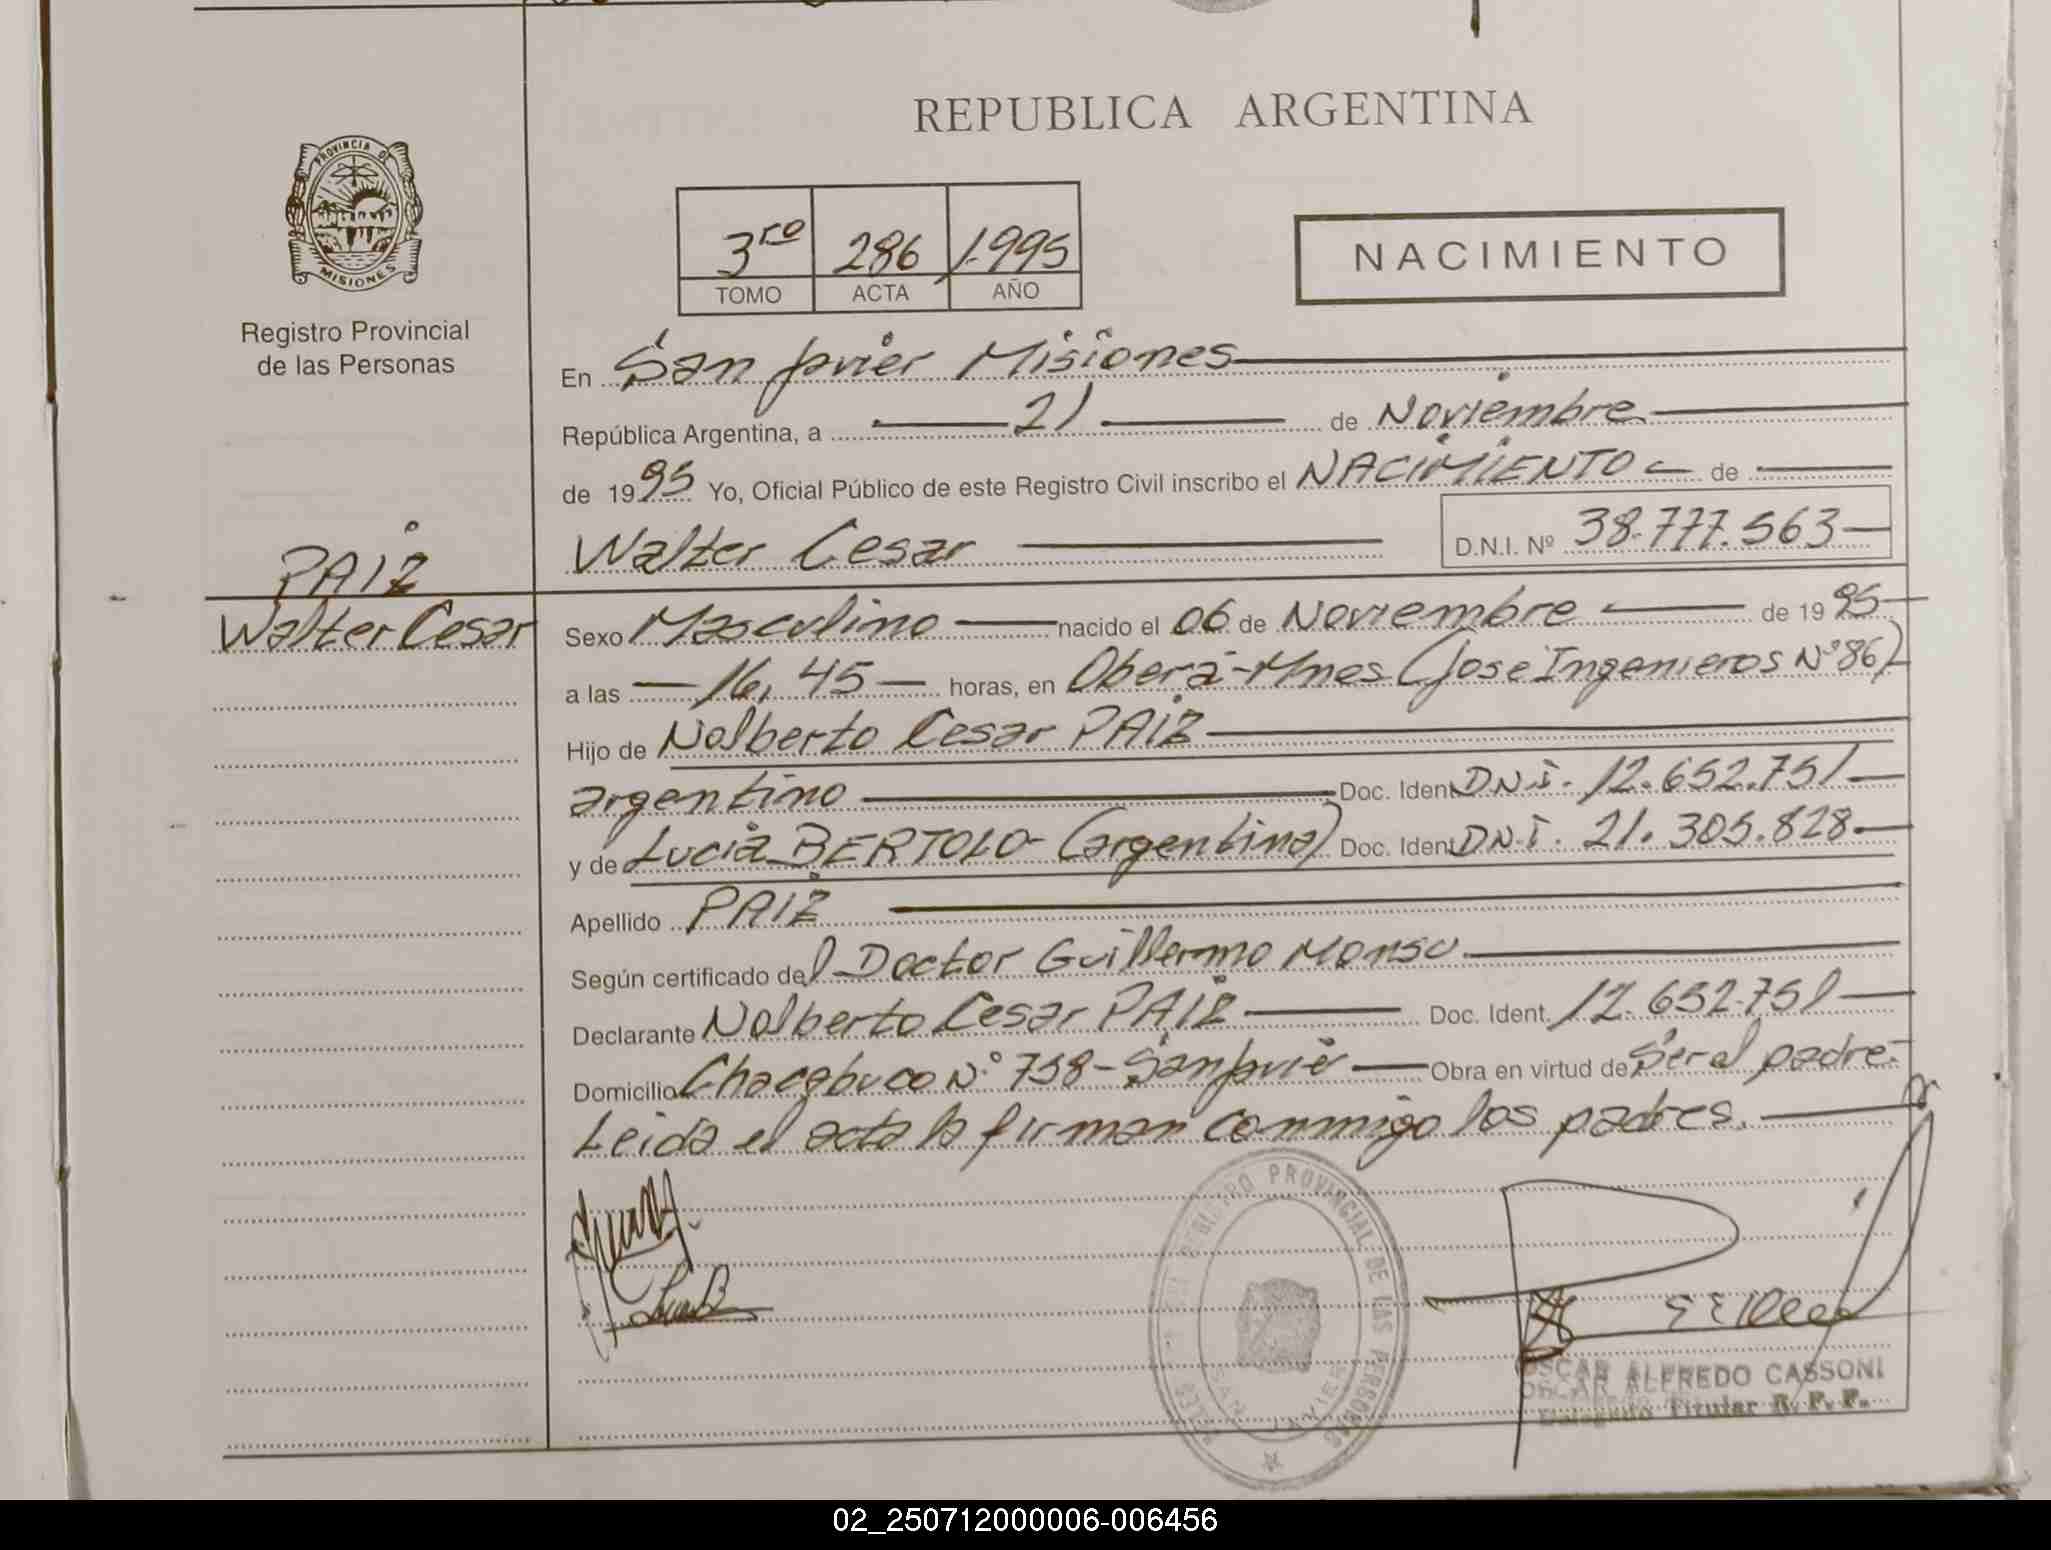 REPUBLICA ARGENTINA
PROVINCIA DE
MISIONES
Registro Provincial
de las Personas
3ro 286 1.995
TOMO ACTA AÑO
NACIMIENTO
En San Javier Misiones
República Argentina, a 21 de Noviembre
de 1995 Yo, Oficial Público de este Registro Civil inscribo el NACIMIENTO de
Walter Cesar D.N.I. Nº 38.777.563
PAIZ
Walter Cesar
Sexo Masculino nacido el 06 de Noviembre de 1995
a las 16,45 horas, en Oberá-Mnes (José Ingenieros Nº 86)
Hijo de Nolberto Cesar PAIZ
argentino Doc. Ident. D.N.I. 12.652.751
y de Lucia BERTOLO- (argentina) Doc. Ident. D.N.I. 21.305.828.
Apellido PAIZ
Según certificado del Doctor Guillermo Monsu
Declarante Nolberto Cesar PAIZ Doc. Ident. 12.652.751
Domicilio Chacabuco Nº 758-San Javier Obra en virtud de Ser el padre.-
Leida el acta la firman conmigo los padres.
REGISTRO PROVINCIAL DE LAS PERSONAS
SAN JAVIER
OSCAR ALFREDO CASSONI
Delegado Titular R. P. P.
02_250712000006-006456